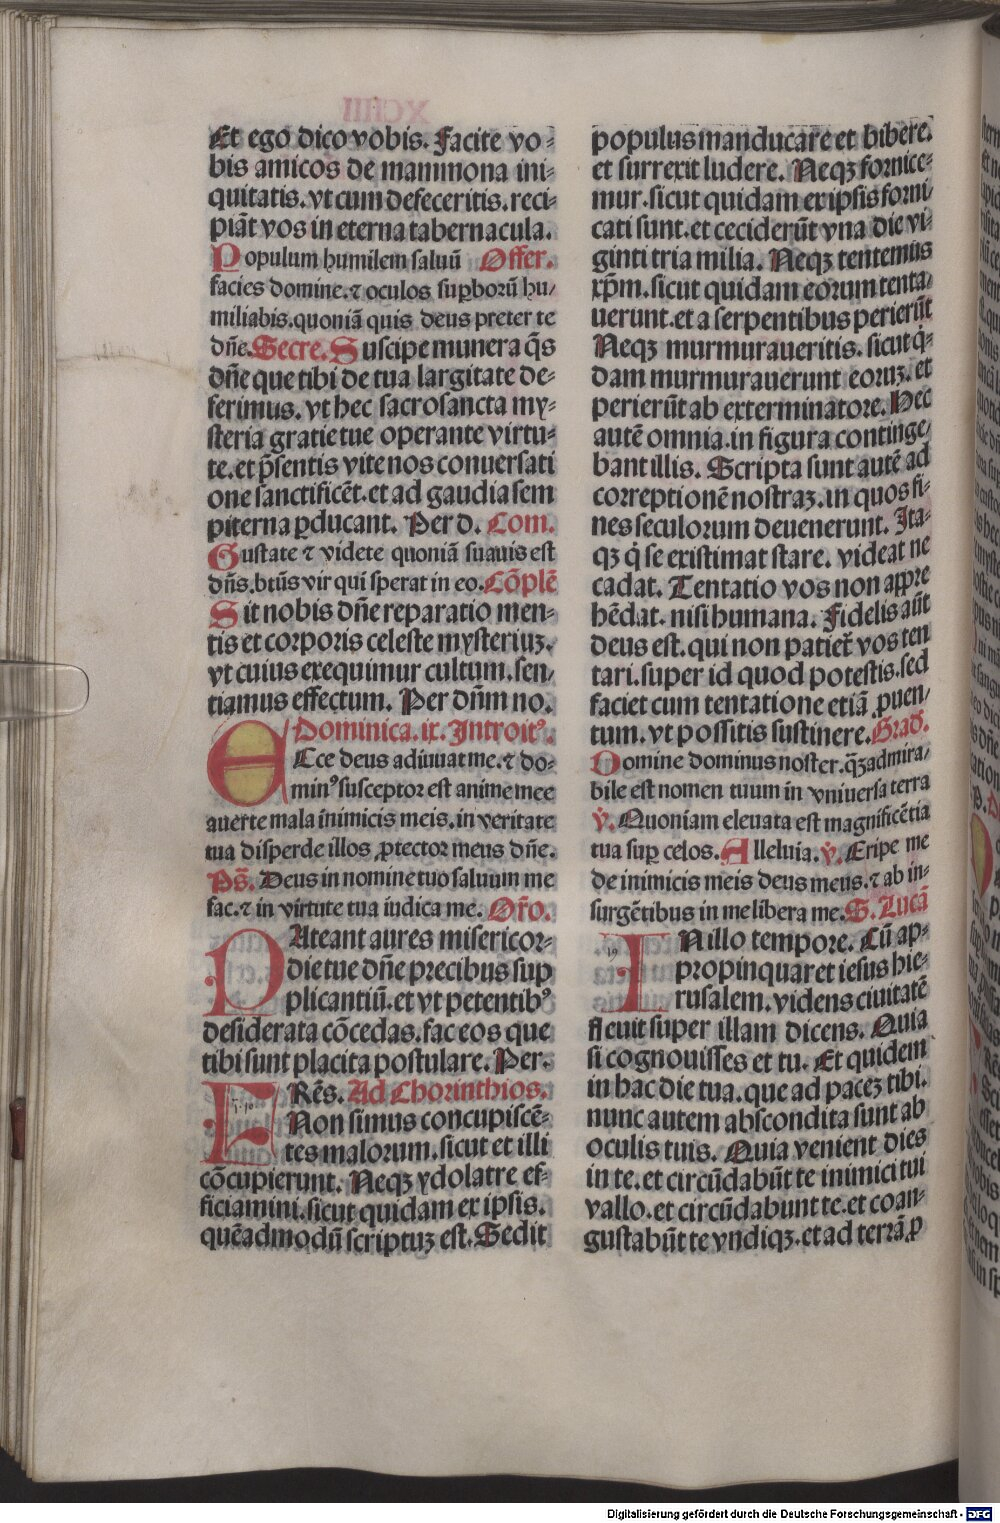 Et ego dico vobis. Facite vo-
bis amicos de mammona ini-
quitatis. vt cum defeceritis. reci-
piāt vos in eterna tabernacula.
Populum humilem saluū Offer.
facies domine. ⁊ oculos suꝑborū hu-
miliabis. quoniā quis deus preter te
dn̄e. Secre. Suscipe munera q̄s
dn̄e que tibi de tua largitate de-
ferimus. vt hec sacrosancta my-
steria gratie tue operante virtu-
te. et p̄sentis vite nos conuersati
one sanctificēt. et ad gaudia sem
piterna ꝑducant. Per d. Com.
Gustate ⁊ videte quoniā suauis est
dn̄s. btūs vir qui sperat in eo. Cōplē
Sit nobis dn̄e reparatio men-
tis et corporis celeste mysteriuꝫ.
vt cuius exequimur cultum. sen-
tiamus effectum. Per dn̄m no.
Dominica. ix. Introitꝰ.
Ecce deus adiuuat me. ⁊ do-
minꝰ susceptor est anime mee
auerte mala inimicis meis. in veritate
tua disperde illos ꝓtector meus dn̄e.
Ps̄. Deus in nomine tuo saluum me
fac. ⁊ in virtute tua iudica me. Or̄o.
PAteant aures misericor-
die tue dn̄e precibus sup
plicantiū. et vt petentibꝰ
desiderata cōcedas. fac eos que
tibi sunt placita postulare. Per.
FRēs. Ad Chorinthios.
Non simus concupiscē-
tes malorum. sicut et illi
cōcupierunt. Neqꝫ ydolatre ef-
ficiamini. sicut quidam ex ipsis.
quēadmodū scriptuꝫ est. Sedit
populus manducare et bibere.
et surrexit ludere. Neqꝫ fornice-
mur. sicut quidam ex ipsis forni
cati sunt. et ceciderūt vna die vi-
ginti tria milia. Neqꝫ tentemus
xp̄m. sicut quidam eorum tenta-
uerunt. et a serpentibus perierūt
Neqꝫ murmuraueritis. sicut q̇-
dam murmurauerunt eoruꝫ. et
perierūt ab exterminatore. Hec
autē omnia. in figura continge-
bant illis. Scripta sunt autē ad
correptionē nostraꝫ. in quos fi-
nes seculorum deuenerunt. Ita-
qꝫ q̇ se existimat stare. videat ne
cadat. Tentatio vos non appre
hēdat. nisi humana. Fidelis aūt
deus est. qui non patiet̄ vos ten
tari. super id quod potestis. sed
faciet cum tentatione etiā ꝓuen-
tum. vt possitis sustinere. Grad̄.
Domine dominus noster. qꝫ̄ admira-
bile est nomen tuum in vniuersa terra
v̇. Quoniam eleuata est magnificētia
tua suꝑ celos. Alleluia. v̇. Eripe me
de inimicis meis deus meus. ⁊ ab in-
surgētibus in me libera me. S. Lucā
IN illo tempore. Cū ap-
propinquaret iesus hie-
rusalem. videns ciuitatē
fleuit super illam dicens. Quia
si cognouisses et tu. Et quidem
in hac die tua. que ad paceꝫ tibi.
nunc autem abscondita sunt ab
oculis tuis. Quia venient dies
in te. et circūdabūt te inimici tui
vallo. et circūdabunt te. et coan-
gustabūt te vndiqꝫ. et ad terrā ꝓ
Digitalisierung gefördert durch die Deutsche Forschungsgemeinschaft - DFG